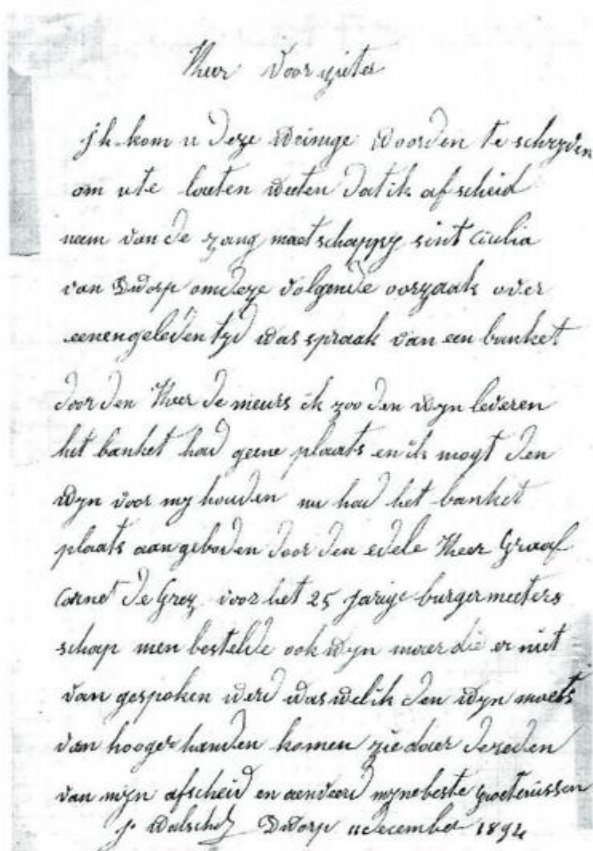 Heer Voorzitter
ik kom u deze weinige woorden te schryven
om u te laeten weeten dat ik afscheid
neem van de zang maetschappy sint Cicilia
van Dworp om deze volgende oorzaak over
eenen geleden tyd was spraak van een banket
door den Heer de meurs ik zoo den wyn leveren
het banket had geene plaats en ik mogt den
wyn voor my houden nu had het banket
plaats aangeboden door den edele Heer Graaf
Cornet de Grez voor het 25 jarige burgermeeters
schap men bestelde ook wyn maer die er niet
van gesproken werd was wel ik den wyn moets
van hooger handen komen zie daer de reden
van myn afscheid en aenveerd myne beste groetenissen
j. Walschot Dworp december 1894